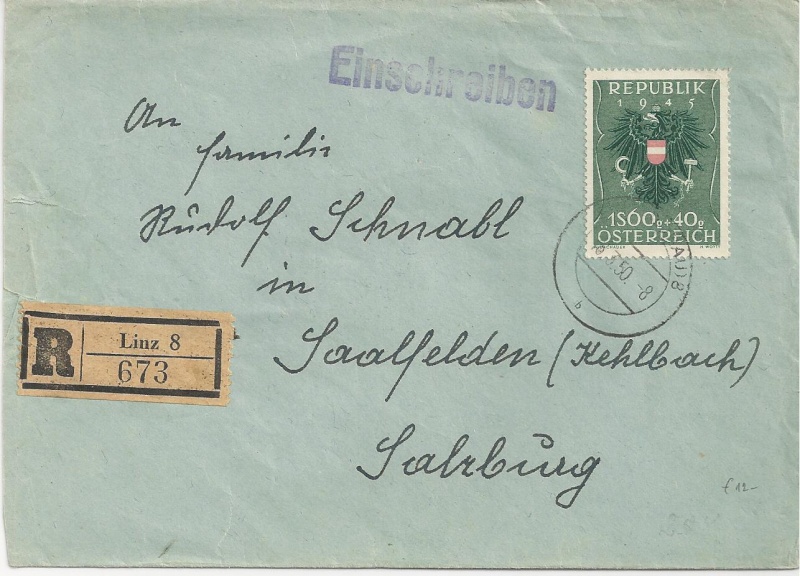 Einschreiben
REPUBLIK
1945
1S60g+40g
ÖSTERREICH
An
Familie
Rudolf Schnabl
in
Saalfelden (Kehlbach)
Salzburg
R
Linz 8
673
50.-8
b